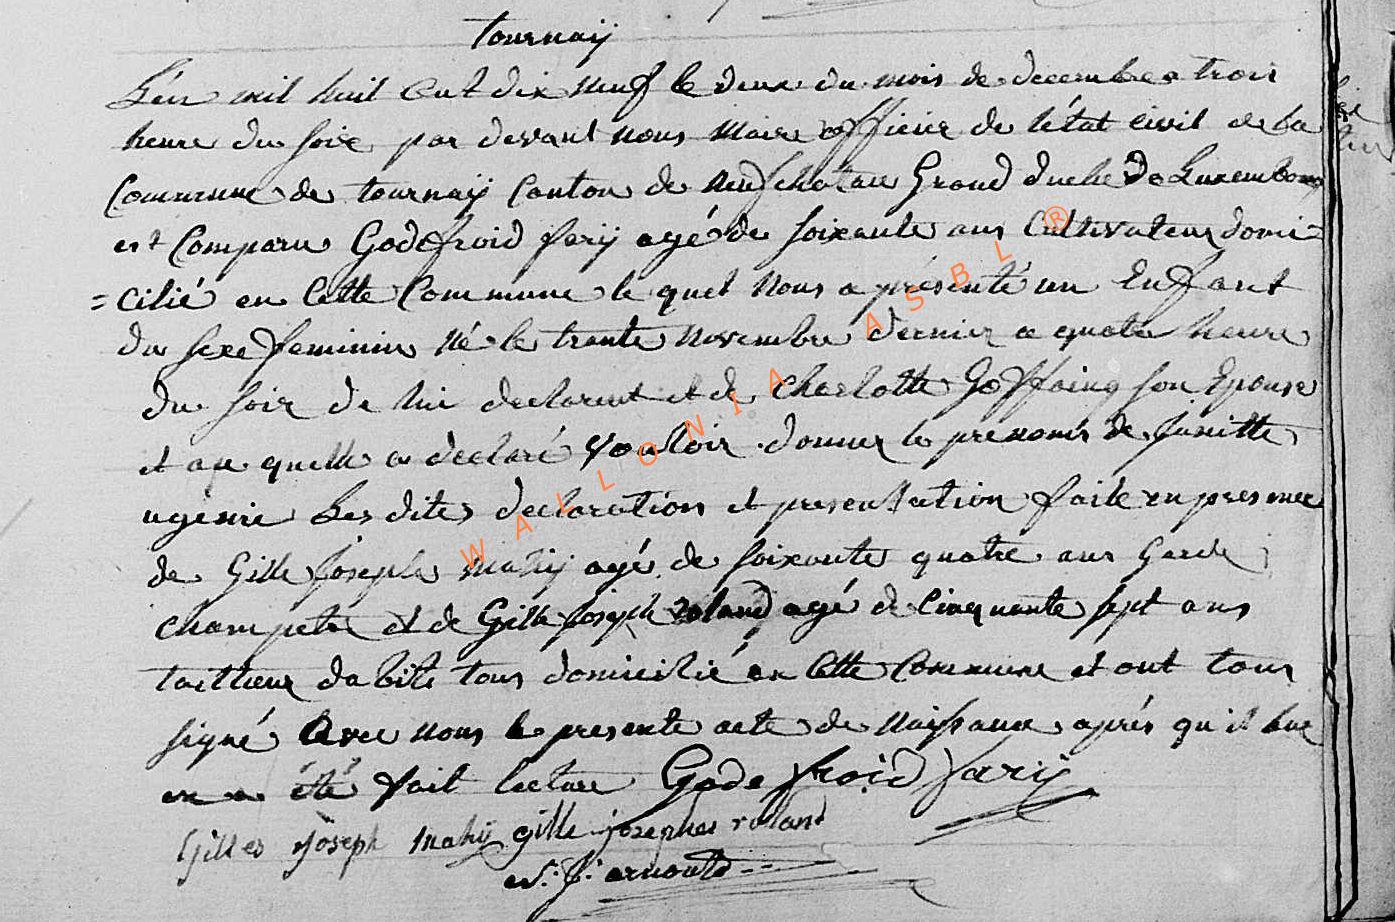 tournaÿ
L'an mil huit Cent dix neuf le deux du mois de decembre a trois
heure du soir par devant nous Maire officier de l'état civil de la
Commune de tournaÿ Canton de neufchatau Grand duché de Luxembourg
est Comparu Godefroid farÿ agé de soixante ans Cultivateur domi=
=cilié en Cette Commune le quel nous a présenté un Enfant
du sexe feminin né le trante novembre dernier a quatre heure
du soir de lui declarent et de Charlotte Goffaing son Epouse
et au quelle a déclaré vouloir donner le prenoms de
ugénie Les dites declaration et presentation faite en presence
de Gille Joseph mahÿ agé de soixante quatre ans Garde
champetre et de Gille Joseph roland agé de Cinquante sept ans
tailleur dabits tous domicilié en Cette Commune et ont tous
signé avec nous le presente acte de naissance aprés qu'il luc
en a été fait lecture Godefroid farÿ
Gilles Joseph Mahÿ gille josephe roland
arnould
WALLONIA ASBL ®